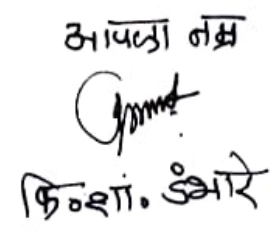 आपला नम्र
कि. शां. डंभारे